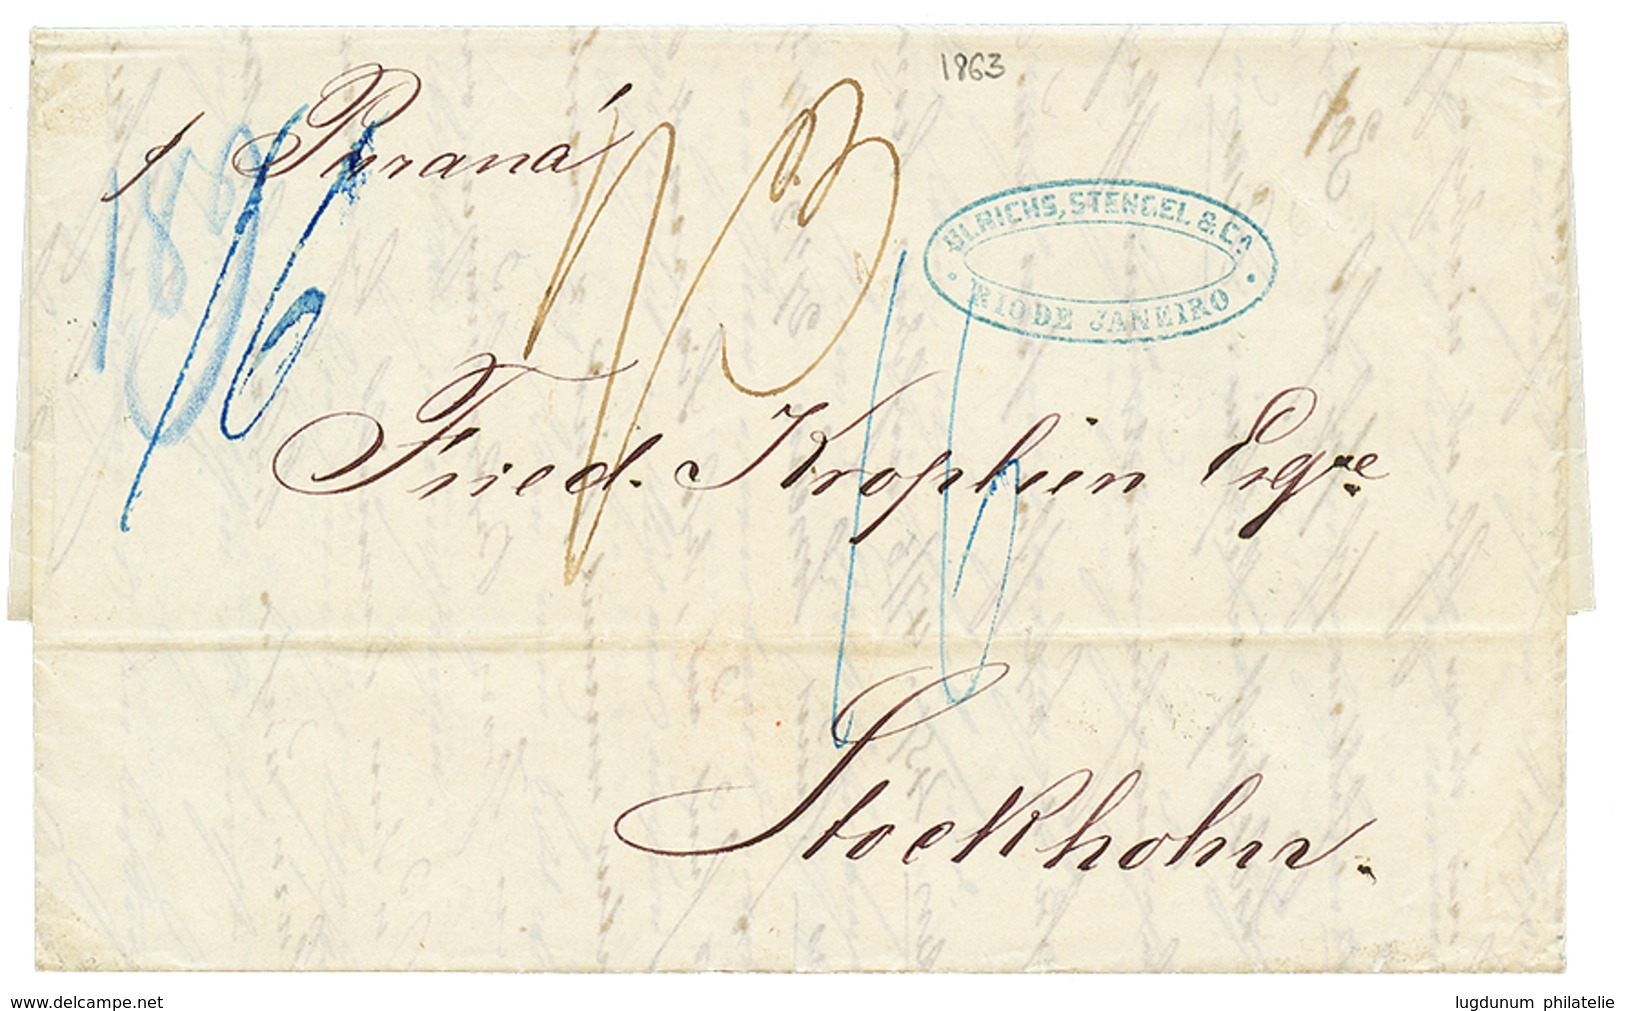 1863
p Paraná
ULRICHS, STENGEL & Co.
RIO DE JANEIRO
Fried. Krophien Esqre
Stockholm.
www.delcampe.net
lugdunum philatelie